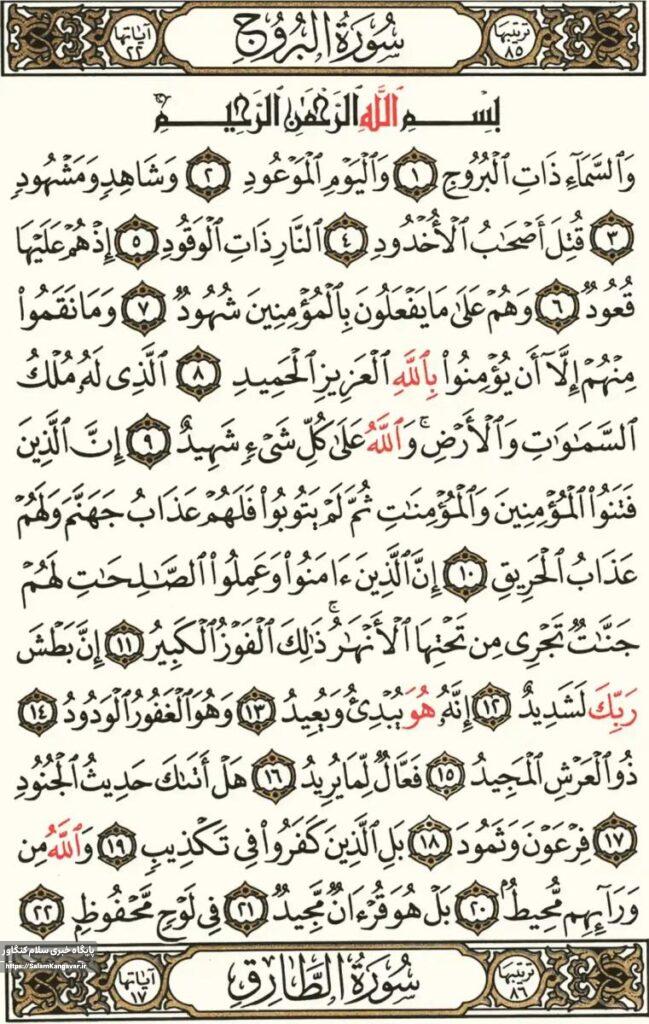 ترتیبها ٨٥ سُورَةُ الْبُرُوجِ آیاتها ٢٢
بِسْمِ اللَّهِ الرَّحْمَٰنِ الرَّحِيمِ
وَالسَّمَاءِ ذَاتِ الْبُرُوجِ ١ وَالْيَوْمِ الْمَوْعُودِ ٢ وَشَاهِدٍ وَمَشْهُودٍ
٣ قُتِلَ أَصْحَابُ الْأُخْدُودِ ٤ النَّارِ ذَاتِ الْوَقُودِ ٥ إِذْ هُمْ عَلَيْهَا
قُعُودٌ ٦ وَهُمْ عَلَىٰ مَا يَفْعَلُونَ بِالْمُؤْمِنِينَ شُهُودٌ ٧ وَمَا نَقَمُوا
مِنْهُمْ إِلَّا أَن يُؤْمِنُوا بِاللَّهِ الْعَزِيزِ الْحَمِيدِ ٨ الَّذِي لَهُ مُلْكُ
السَّمَاوَاتِ وَالْأَرْضِ ۚ وَاللَّهُ عَلَىٰ كُلِّ شَيْءٍ شَهِيدٌ ٩ إِنَّ الَّذِينَ
فَتَنُوا الْمُؤْمِنِينَ وَالْمُؤْمِنَاتِ ثُمَّ لَمْ يَتُوبُوا فَلَهُمْ عَذَابُ جَهَنَّمَ وَلَهُمْ
عَذَابُ الْحَرِيقِ ١٠ إِنَّ الَّذِينَ ءَامَنُوا وَعَمِلُوا الصَّالِحَاتِ لَهُمْ
جَنَّاتٌ تَجْرِي مِن تَحْتِهَا الْأَنْهَارُ ۚ ذَٰلِكَ الْفَوْزُ الْكَبِيرُ ١١ إِنَّ بَطْشَ
رَبِّكَ لَشَدِيدٌ ١٢ إِنَّهُ هُوَ يُبْدِئُ وَيُعِيدُ ١٣ وَهُوَ الْغَفُورُ الْوَدُودُ ١٤
ذُو الْعَرْشِ الْمَجِيدُ ١٥ فَعَّالٌ لِّمَا يُرِيدُ ١٦ هَلْ أَتَاكَ حَدِيثُ الْجُنُودِ
١٧ فِرْعَوْنَ وَثَمُودَ ١٨ بَلِ الَّذِينَ كَفَرُوا فِي تَكْذِيبٍ ١٩ وَاللَّهُ مِن
وَرَائِهِم مُّحِيطٌ ٢٠ بَلْ هُوَ قُرْءَانٌ مَّجِيدٌ ٢١ فِي لَوْحٍ مَّحْفُوظٍ ٢٢
پایگاه خبری سلام کنگاور
https://SalamKangavar.ir
ترتیبها ٨٦ سُورَةُ الطَّارِقِ آیاتها ١٧